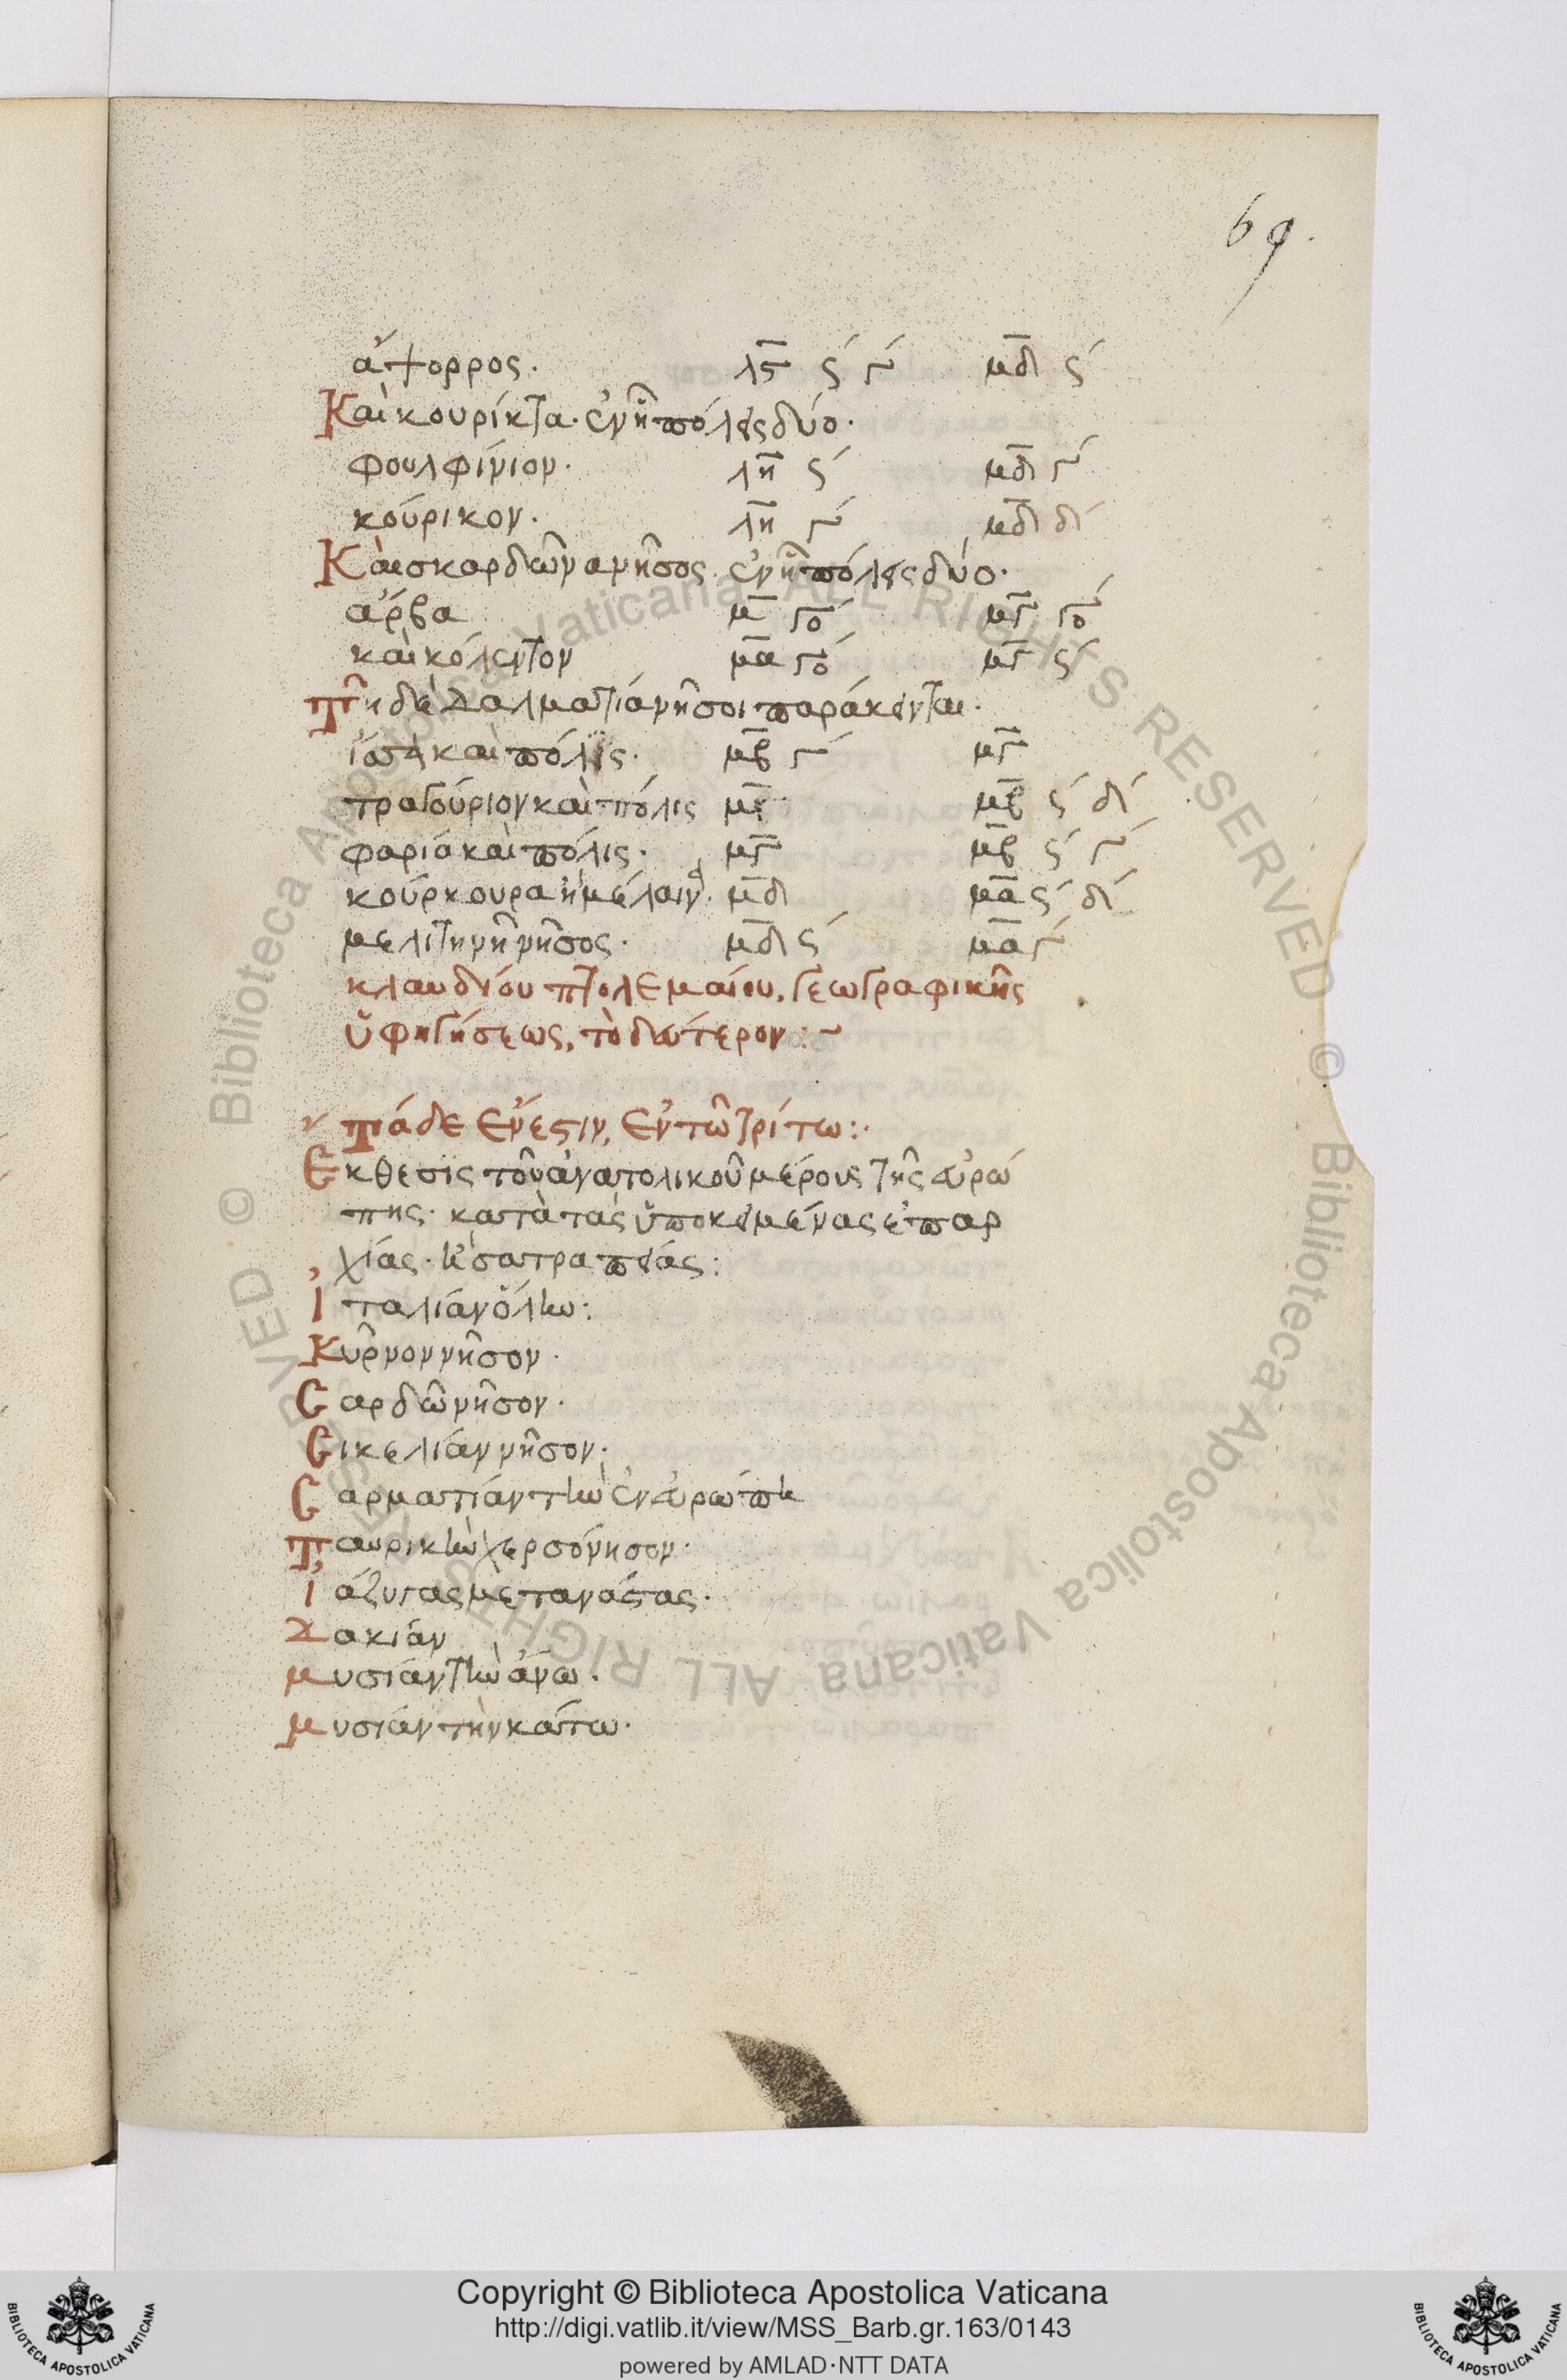 69.
ἄψορρος. λϛ ϛ´ γ´ μδ ϛ´
Καὶ κουρίκτα· ἐν ἧ πόλεις δύο·
φουλφίνιον· λη ϛ´ μδ γ´
κούρικον· λη γ´ μδ δ´
Καὶ σκαρδῶνα νῆσος· ἐν ἧ πόλεις δύο·
αρβα μ γο´ μγ γο´
καὶ κόλεντον μα γο´ μγ ϛ´
τῆ δὲ δαλματία νῆσοι παράκεινται·
ἴσσα καὶ πόλις· μβ γ´ μγ
τραγούριον καὶ πόλις μβ ϛ´ δ´
φαρία καὶ πόλις· μγ μβ ϛ´ γ´
κούρκουρα ἡ μέλαινα· μδ μα ϛ´ δ´
μελιτηνὴ νῆσος· μδ ϛ´ μα γ´
κλαυδίου πτολεμαίου, γεωγραφικῆς
ὑφηγήσεως, τὸ δεύτερον:~
τάδε ἔνεστιν, ἐν τῶ τρίτω:·
Ἔκθεσις τοῦ ἀνατολικοῦ μέρους τῆς εὐρώ
πης· κατὰ τὰς ὑποκειμένας ἐπαρ
χίας· ἢ σατραπείας:
Ἰταλίαν ὅλην:
Κύρνον νῆσον·
Σαρδὼ νῆσον·
Σικελίαν νῆσον·
Σαρματίαν τὴν ἐν εὐρώπη
Ταυρικὴν χερσόνησον·
Ἰάζυγας μετανάστας·
Δακίαν
μυσίαν τὴν ἄνω·
μυσίαν τὴν κάτω·
Copyright © Biblioteca Apostolica Vaticana
http://digi.vatlib.it/view/MSS_Barb.gr.163/0143
powered by AMLAD·NTT DATA